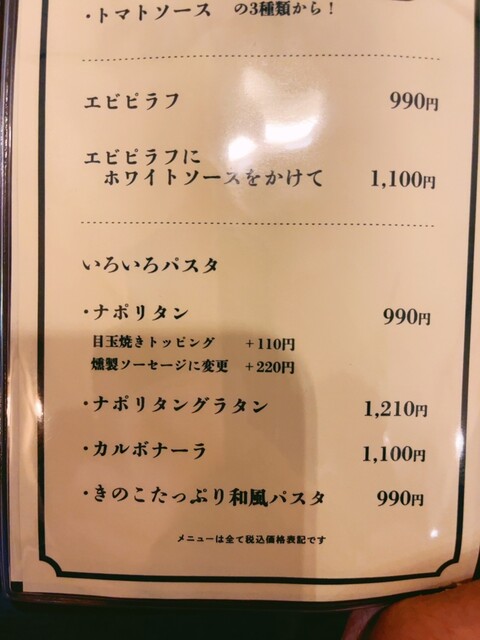 ・トマトソース の3種類から！
エビピラフ 990円
エビピラフに
ホワイトソースをかけて 1,100円
いろいろパスタ
・ナポリタン 990円
目玉焼きトッピング +110円
燻製ソーセージに変更 +220円
・ナポリタングラタン 1,210円
・カルボナーラ 1,100円
・きのこたっぷり和風パスタ 990円
メニューは全て税込価格表記です